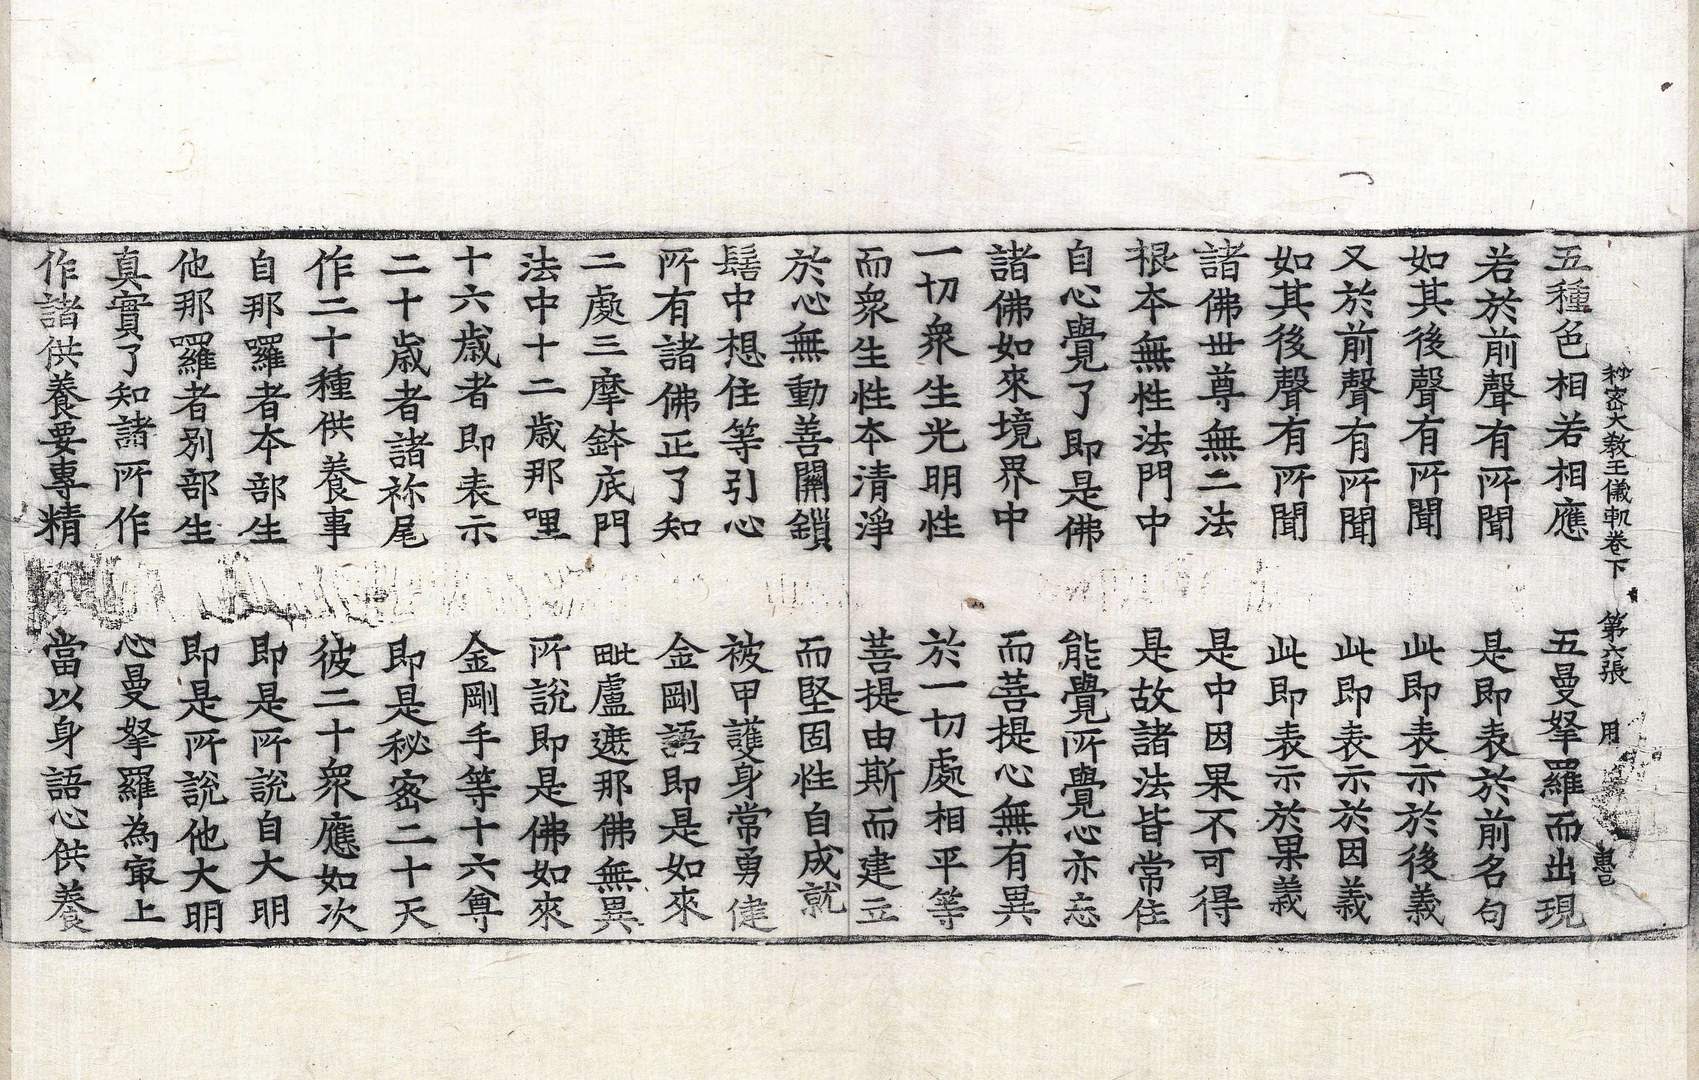 秘密大教王儀軌卷下 第六張 用 惠已
五種色相若相應 五曼拏羅而出現
若於前聲有所聞 是即表於前名句
如其後聲有所聞 此即表示於後義
又於前聲有所聞 此即表示於因義
如其後聲有所聞 此即表示於果義
諸佛世尊無二法 是中因果不可得
根本無性法門中 是故諸法皆常住
自心覺了即是佛 能覺所覺心亦忘
諸佛如來境界中 而菩提心無有異
一切衆生光明性 於一切處相平等
而衆生性本清淨 菩提由斯而建立
於心無動善關鎖 而堅固性自成就
髻中想住等引心 被甲護身常勇健
所有諸佛正了知 金剛語即是如來
二處三摩鉢底門 毗盧遮那佛無異
法中十二歲那哩 所說即是佛如來
十六歲者即表示 金剛手等十六尊
二十歲者諸祢尾 即是秘密二十天
作二十種供養事 彼二十衆應如次
自那囉者本部生 即是所說自大明
他那囉者別部生 即是所說他大明
真實了知諸所作 心曼拏羅為㝡上
作諸供養要專精 當以身語心供養